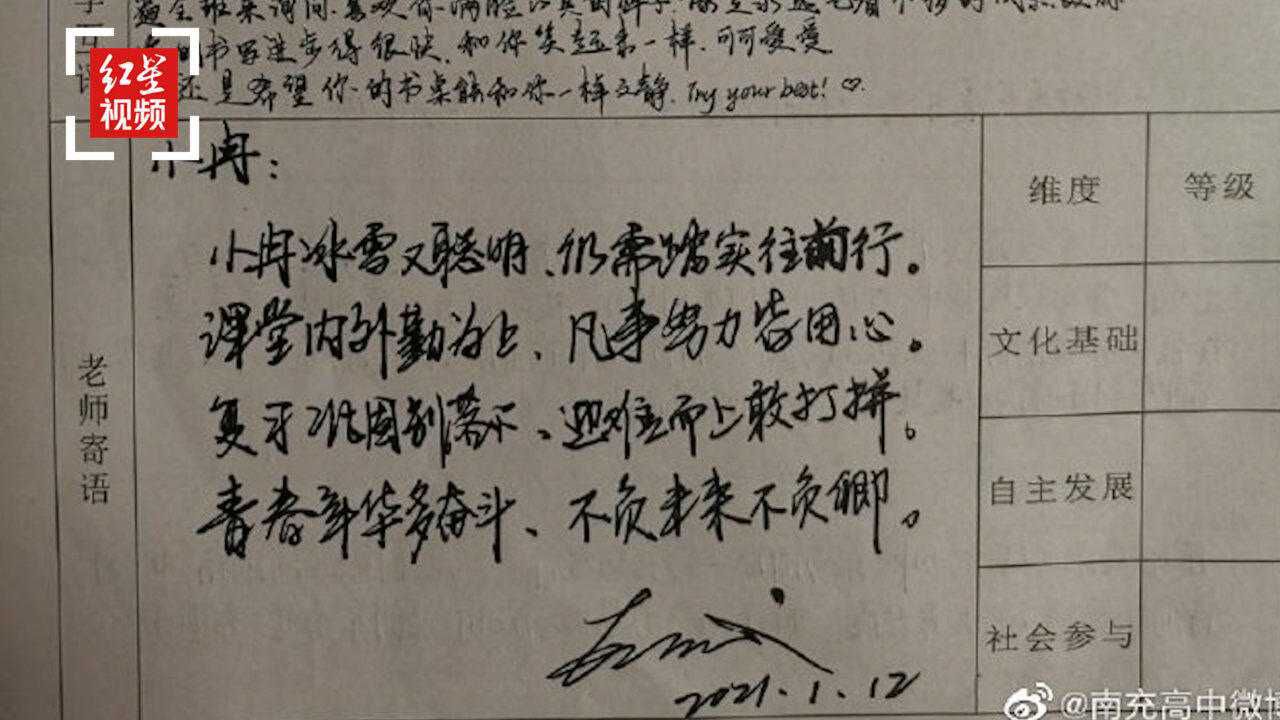 红星
视频
书写进步得很快,和你笑起来一样,可可爱爱
还是希望你的书桌能和你一样文静.Try your best!♡.
小冉:
小冉冰雪又聪明、仍需踏实往前行。
课堂内外勤为上、凡事努力皆用心。
别落下、迎难而上敢打拼。
青春年华多奋斗、不负未来不负卿。
2021.1.12
老师寄语
维度
等级
文化基础
自主发展
社会参与
@南充高中微博